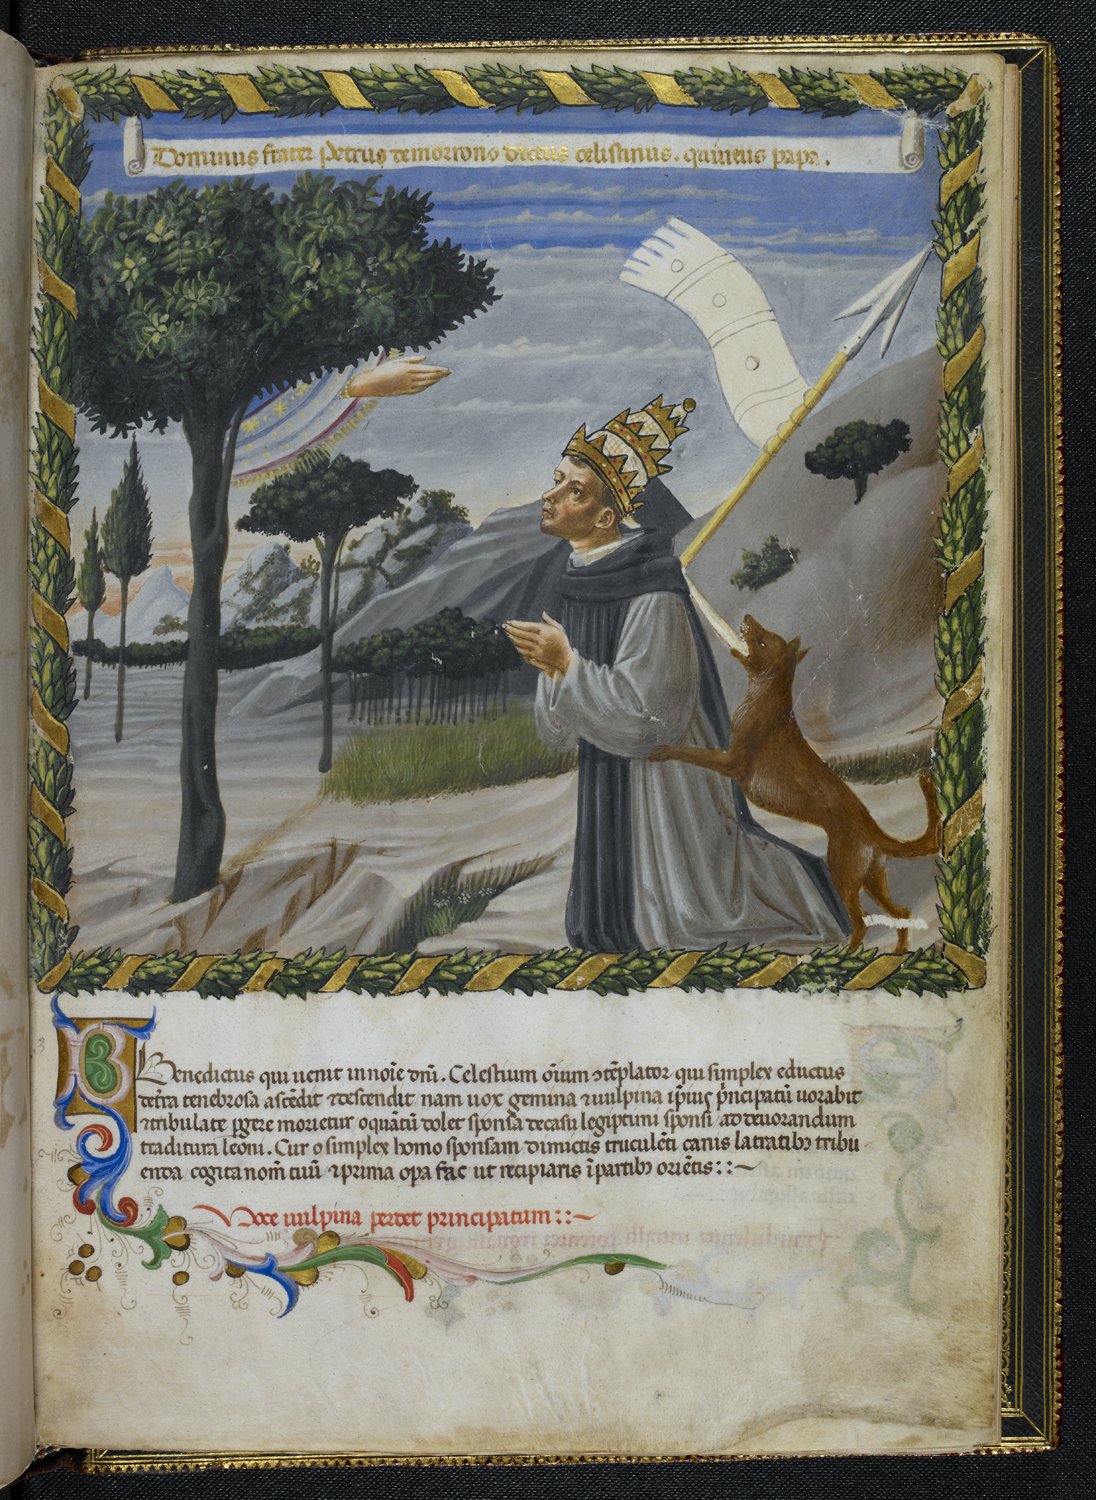 Dominus frater Petrus de morrono dictus celistinus. quintus papa.
Benedictus qui uenit in noīe dñi. Celestium oīum ↄtēplator qui simplex eductus
de tr̄a tenebrosa ascēdit ⁊ descendit nam uox gemina ⁊ uulpina ip̄ius p̄ncipatū uorabit
⁊ tribulate ꝑgere morietur o quātū dolet spōsa de casu legiptimi sponsi ad deuorandum
traditura leoni. Cur o simplex homo sponsam dimictis truculēti canis latratibꝰ tribu
enda cogita nom̄ tuū ⁊ prima oꝑa fac ut recipiaris ī partibꝰ oriētis : : ~
Voce uulpina perdet principatum : : ~